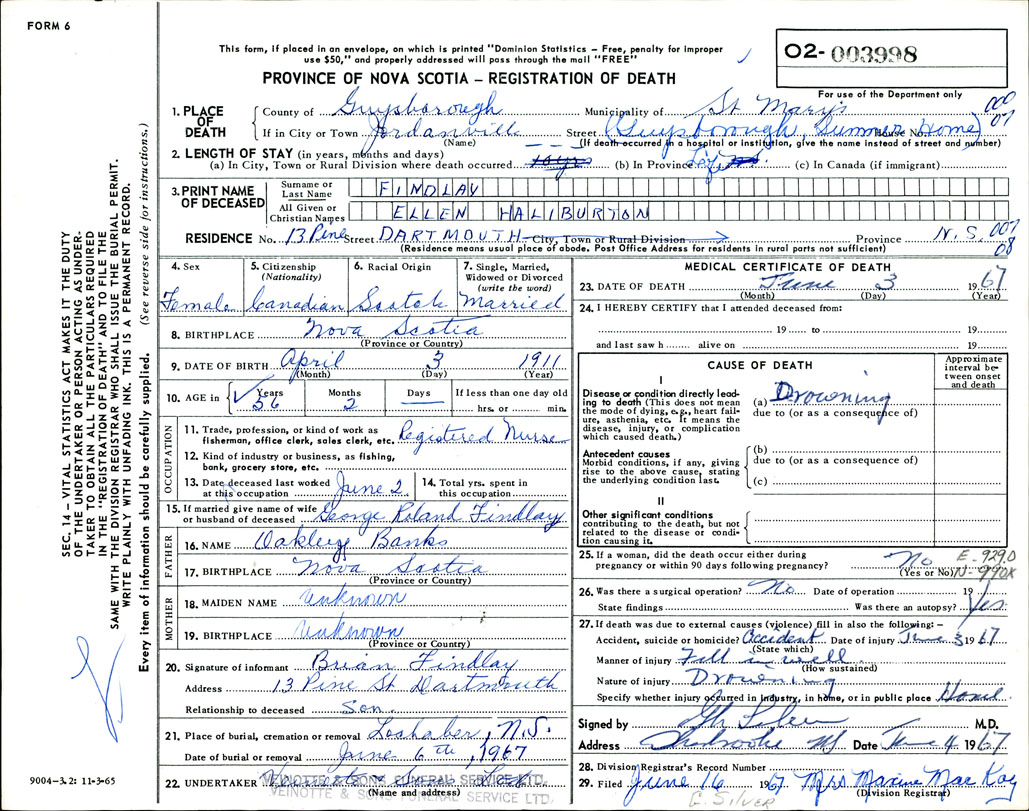 FORM 6
This form, if placed in an envelope, on which is printed "Dominion Statistics – Free, penalty for improper
use $50," and properly addressed will pass through the mail "FREE"
O2- 003998
PROVINCE OF NOVA SCOTIA – REGISTRATION OF DEATH
For use of the Department only
1. PLACE OF DEATH
County of Guysborough Municipality of St Mary's
If in City or Town Jordanville Street (Guysborough, Summer Home) House No.
(Name) (If death occurred in a hospital or institution, give the name instead of street and number)
2. LENGTH OF STAY (in years, months and days)
(a) In City, Town or Rural Division where death occurred (b) In Province Life (c) In Canada (if immigrant)
3. PRINT NAME OF DECEASED
Surname or Last Name FINDLAY
All Given or Christian Names ELLEN HALIBURTON
RESIDENCE No. 13 Pine Street DARTMOUTH City, Town or Rural Division Province N.S. 007
08
(Residence means usual place of abode. Post Office Address for residents in rural parts not sufficient)
4. Sex Female
5. Citizenship (Nationality) Canadian
6. Racial Origin Scotch
7. Single, Married, Widowed or Divorced (write the word) Married
8. BIRTHPLACE Nova Scotia
(Province or Country)
9. DATE OF BIRTH April 3 1911
(Month) (Day) (Year)
10. AGE in Years 56 Months 2 Days — If less than one day old hrs. or min.
OCCUPATION
11. Trade, profession, or kind of work as fisherman, office clerk, sales clerk, etc. Registered Nurse
12. Kind of industry or business, as fishing, bank, grocery store, etc.
13. Date deceased last worked at this occupation June 2
14. Total yrs. spent in this occupation
15. If married give name of wife or husband of deceased George Roland Findlay
FATHER
16. NAME Oakley Banks
17. BIRTHPLACE Nova Scotia
(Province or Country)
MOTHER
18. MAIDEN NAME Unknown
19. BIRTHPLACE Unknown
(Province or Country)
20. Signature of informant Brian Findlay
Address 13 Pine St Dartmouth
Relationship to deceased Son
21. Place of burial, cremation or removal Lochaber, N.S.
Date of burial or removal June 6th, 1967
22. UNDERTAKER VEINOTTE & SONS FUNERAL SERVICE LTD.
(Name and address)
VEINOTTE & SONS FUNERAL SERVICE LTD.
MEDICAL CERTIFICATE OF DEATH
23. DATE OF DEATH June 3 1967
(Month) (Day) (Year)
24. I HEREBY CERTIFY that I attended deceased from:
19 to 19
and last saw h alive on 19
CAUSE OF DEATH
Approximate interval between onset and death
I
Disease or condition directly leading to death (This does not mean the mode of dying, e.g., heart failure, asthenia, etc. It means the disease, injury, or complication which caused death.)
(a) Drowning
due to (or as a consequence of)
Antecedent causes
Morbid conditions, if any, giving rise to the above cause, stating the underlying condition last.
(b)
due to (or as a consequence of)
(c)
II
Other significant conditions
contributing to the death, but not related to the disease or condition causing it.
25. If a woman, did the death occur either during pregnancy or within 90 days following pregnancy? No
(Yes or No)
E-929.0
N-990X
26. Was there a surgical operation? No Date of operation 19
State findings Was there an autopsy? Yes
27. If death was due to external causes (violence) fill in also the following: –
Accident, suicide or homicide? Accident Date of injury June 3 1967
(State which)
Manner of injury Fell in well
(How sustained)
Nature of injury Drowning
Specify whether injury occurred in Industry, in home, or in public place Home
Signed by M.D.
Address Sherbrooke NS Date June 4 1967
28. Division Registrar's Record Number
29. Filed June 16 1967 Mrs Maxine MacKay
(Division Registrar)
E. SILVER
SEC. 14 – VITAL STATISTICS ACT MAKES IT THE DUTY
OF THE UNDERTAKER OR PERSON ACTING AS UNDER-
TAKER TO OBTAIN ALL THE PARTICULARS REQUIRED
IN THE "REGISTRATION OF DEATH" AND TO FILE THE
SAME WITH THE DIVISION REGISTRAR WHO SHALL ISSUE THE BURIAL PERMIT.
WRITE PLAINLY WITH UNFADING INK. THIS IS A PERMANENT RECORD.
Every item of information should be carefully supplied. (See reverse side for instructions.)
9004-3.2: 11-3-65